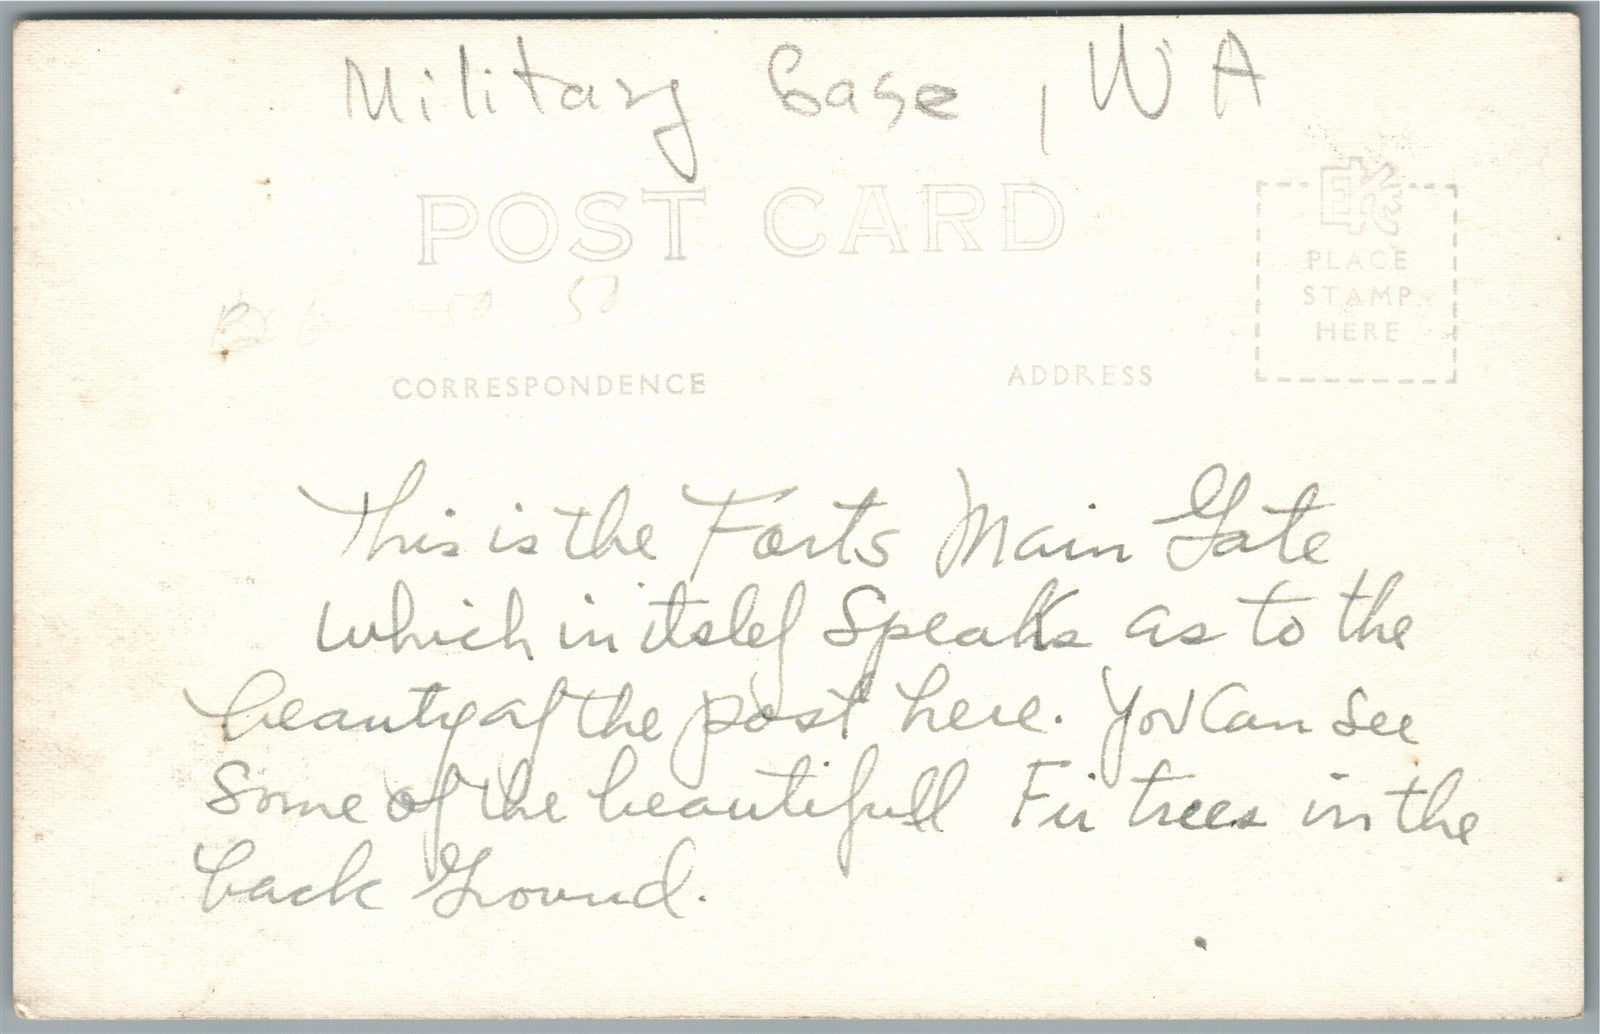 Military base, WA
POST CARD
EKC
PLACE
STAMP
HERE
50 50
CORRESPONDENCE
ADDRESS
This is the Forts Main Gate
which in itslef Speaks as to the
beauty of the post here. You Can See
Some of the beautifull Fir trees in the
back Ground.